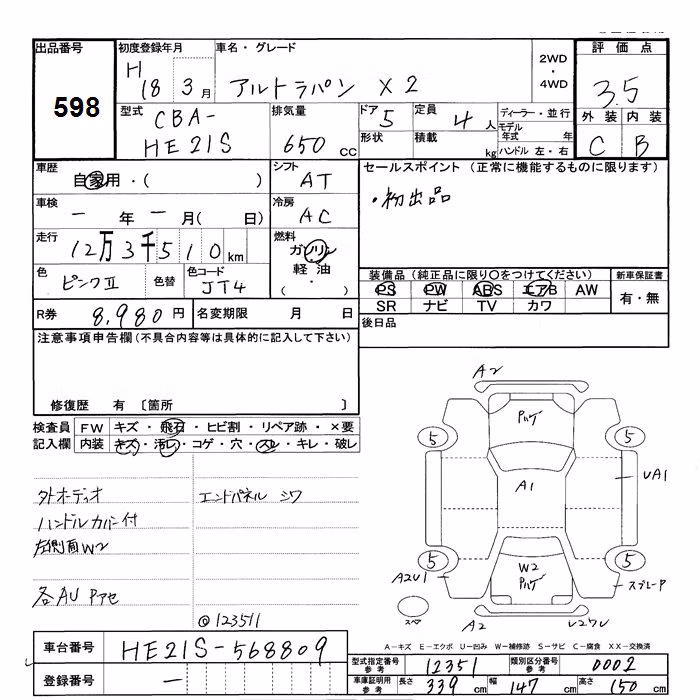 出品番号 598
初度登録年月 H 18 3月
車名・グレード アルトラパン X2
2WD・4WD
評価点 3.5
型式 CBA-HE21S
排気量 650 cc
ドア 5 定員 4人
形状 積載 kg
ディーラー・並行
モデル年式 年
ハンドル 左・右
外装 内装
C B
車歴 自家用・( )
シフト AT
車検 一年一月( 日)
冷房 AC
走行 12万3千510km
燃料 ガソリン 軽油・( )
色 ピンクII 色替 色コード JT4
セールスポイント (正常に機能するものに限ります)
・初出品
装備品 (純正品に限り○をつけてください)
新車保証書
PS PW ABS エアB AW
有・無
SR ナビ TV カワ
R券 8,980円 名変期限 月 日
後日品
注意事項申告欄(不具合内容等は具体的に記入して下さい)
修復歴 有 〔箇所 〕
検査員記入欄
FW キズ・飛石・ヒビ割・リペア跡・×要
内装 キズ・汚れ・コゲ・穴・スレ・キレ・破レ
外オーディオ
エンドパネル シワ
ハンドルカバー付
左側面W2
各AU Pアセ
◎123511
A2
Pハゲ
5 5
UA1
A1
5 5
W2
Pハゲ
A2U1
スプレーP
スペ
A2
A-キズ E-エクボ U-凹み W-補修跡 S-サビ C-腐食 XX-交換済
車台番号 HE21S-568809
登録番号 一
型式指定番号 参考 12351 類別区分番号 参考 0002
車庫証明用 参考 長さ 339cm 幅 147cm 高さ 150cm